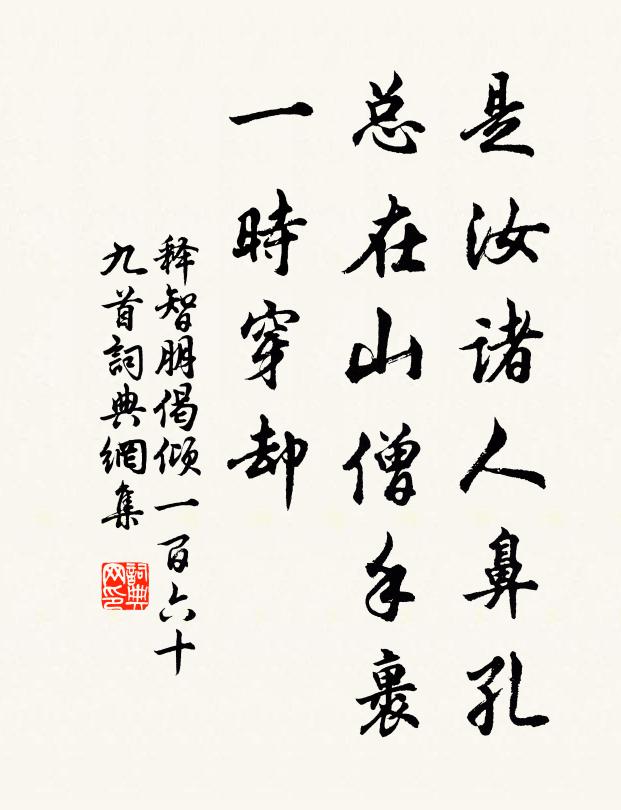 是汝诸人鼻孔
总在山僧手裹
一時穿却
释智朋偈倾一百六十
九首詞典網集
詞典网印